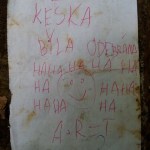 KEŠKA
BYLA ODEBRANA
HAHA HA HA HA
HA :-) HAHA
HAHA HA.
A-R-T